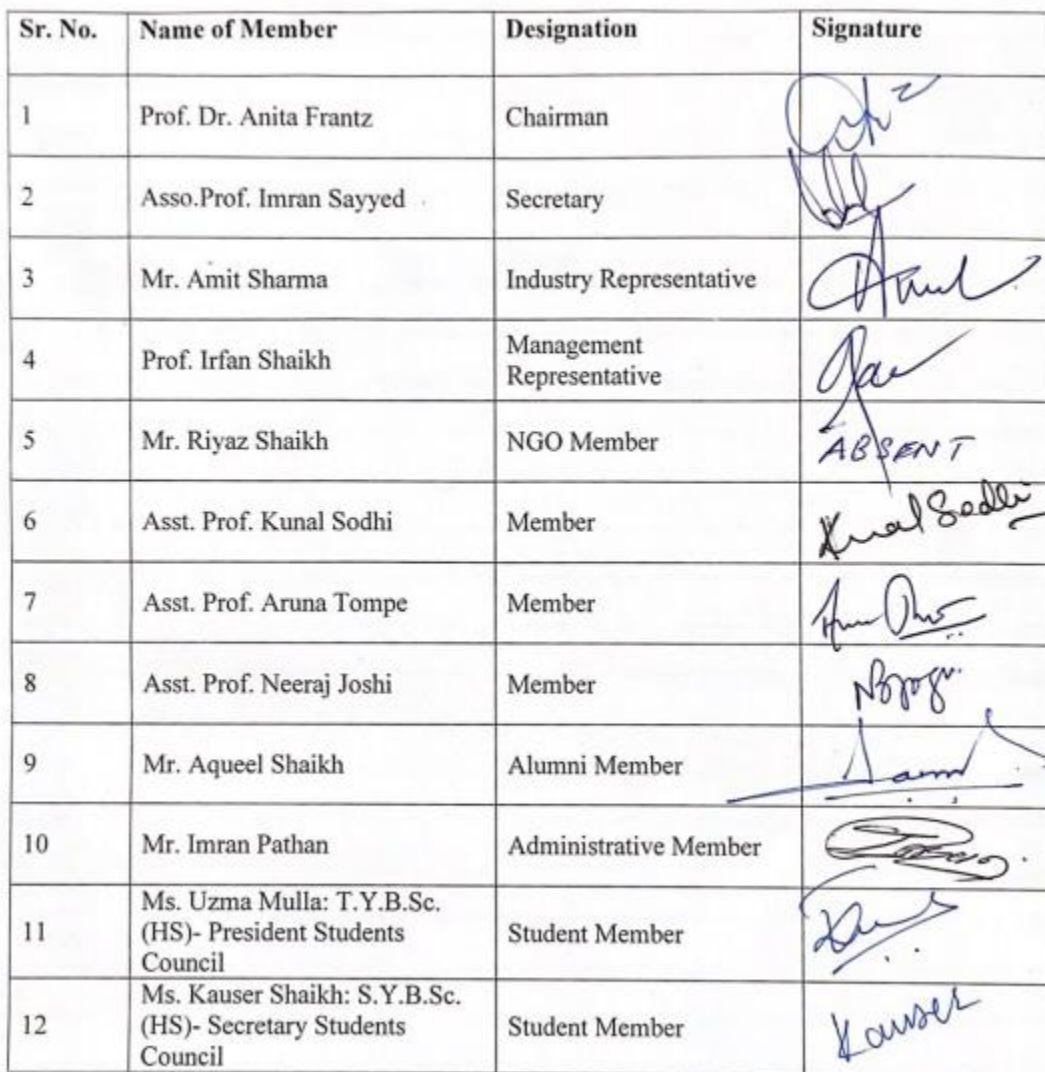 Sr. No. Name of Member Designation Signature
1 Prof. Dr. Anita Frantz Chairman
2 Asso.Prof. Imran Sayyed Secretary
3 Mr. Amit Sharma Industry Representative
4 Prof. Irfan Shaikh Management
Representative
5 Mr. Riyaz Shaikh NGO Member ABSENT
6 Asst. Prof. Kunal Sodhi Member Kunal Sodhi
7 Asst. Prof. Aruna Tompe Member
8 Asst. Prof. Neeraj Joshi Member
9 Mr. Aqueel Shaikh Alumni Member
10 Mr. Imran Pathan Administrative Member
Ms. Uzma Mulla: T.Y.B.Sc.
11 (HS)- President Students Student Member
Council
Ms. Kauser Shaikh: S.Y.B.Sc.
12 (HS)- Secretary Students Student Member Kauser
Council